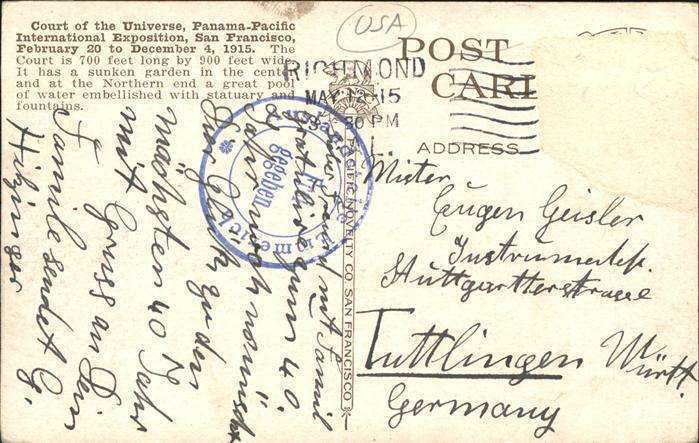 Court of the Universe, Panama-Pacific
International Exposition, San Francisco,
February 20 to December 4, 1915. The
Court is 700 feet long by 900 feet wide.
It has a sunken garden in the center
and at the Northern end a great pool
of water embellished with statuary and
fountains.
USA
POST CARD
RICHMOND
MAY 12 15
30 PM
ADDRESS
PACIFIC NOVELTY CO. SAN FRANCISCO
gegeben
Frei
mit Famil
gratuliere zum 40.
Jahr
Dir Glück zu den
nächsten 40 Jahr
mit Gruss an Dein
Familie sendet G.
Hilzinger
Mister
Eugen Geisler
Stuttgartterstrasse
Tuttlingen Württ.
Germany